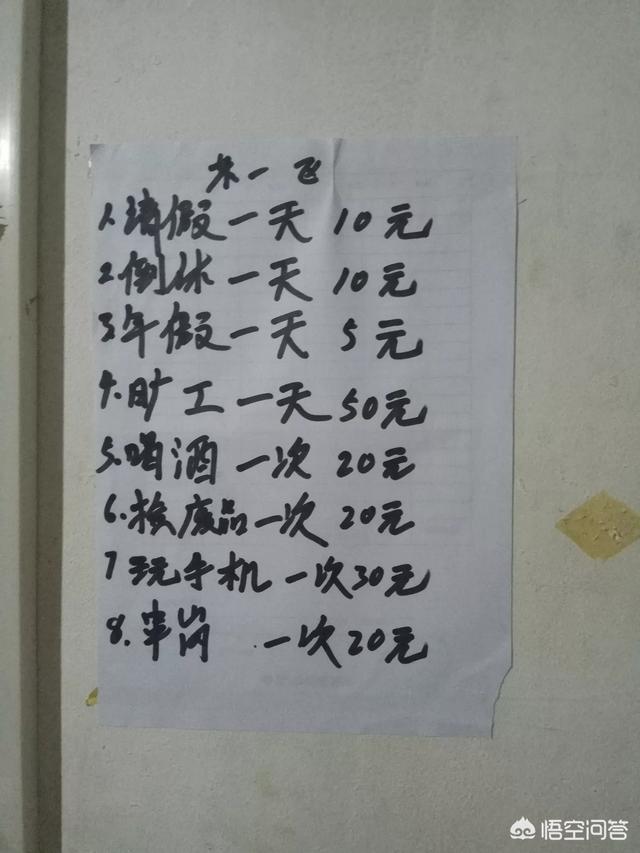 米一飞
1.请假一天 10元
2.倒休一天 10元
3.年假一天 5元
4.旷工一天50元
5.喝酒一次 20元
6.捡废品一次 20元
7玩手机 一次30元
8.串岗 一次20元
悟空问答